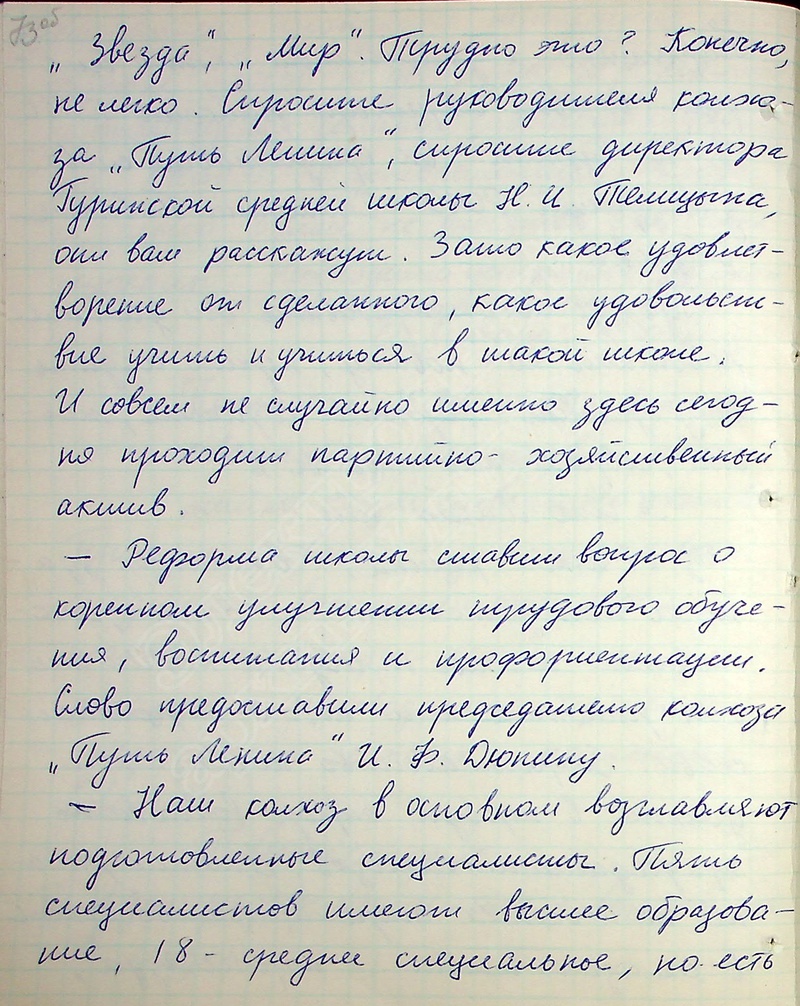 73об
„Звезда", „Мир". Трудно это? Конечно,
не легко. Спросите руководителя колхо-
за „Путь Ленина", спросите директора
Гуринской средней школы Н. И. Телицына,
они вам расскажут. Зато какое удовлет-
ворение от сделанного, какое удовольст-
вие учить и учиться в такой школе.
И совсем не случайно именно здесь сегод-
ня проходит партийно-хозяйственный
актив.
– Реформа школы ставит вопрос о
коренном улучшении трудового обуче-
ния, воспитания и профориентации.
Слово предоставили председателю колхоза
„Путь Ленина" И. Ф. Дюпину.
– Наш колхоз в основном возглавляют
подготовленные специалисты. Пять
специалистов имеют высшее образова-
ние, 18 – среднее специальное, но есть